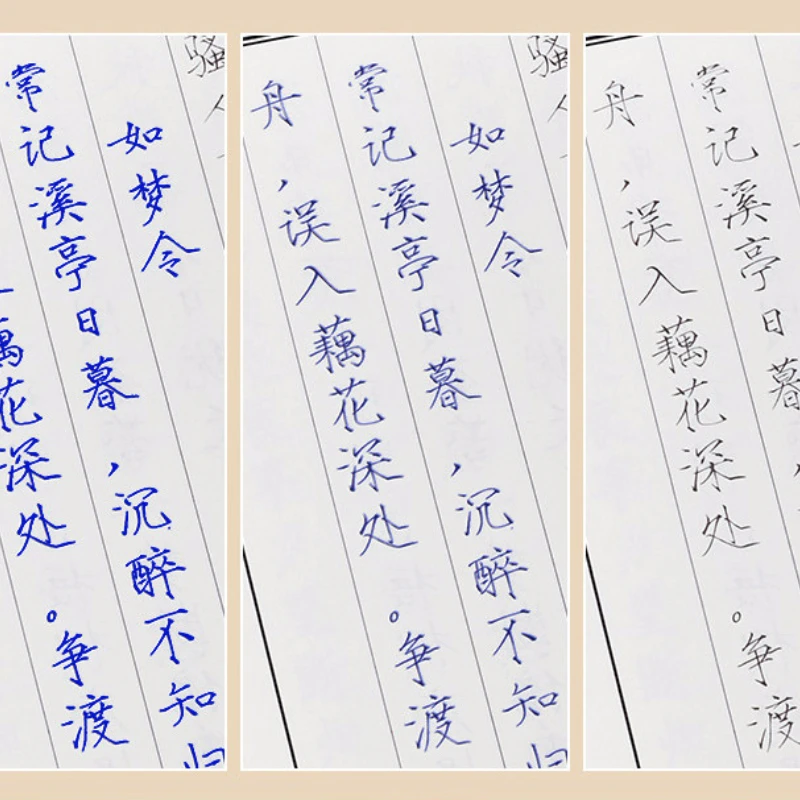 骚
如梦令
常记溪亭日暮，沉醉不知归
藕花深处。争渡
骚
如梦令
常记溪亭日暮，沉醉不知归
舟，误入藕花深处。争渡
常记溪亭日暮
舟，误入藕花深处。争渡